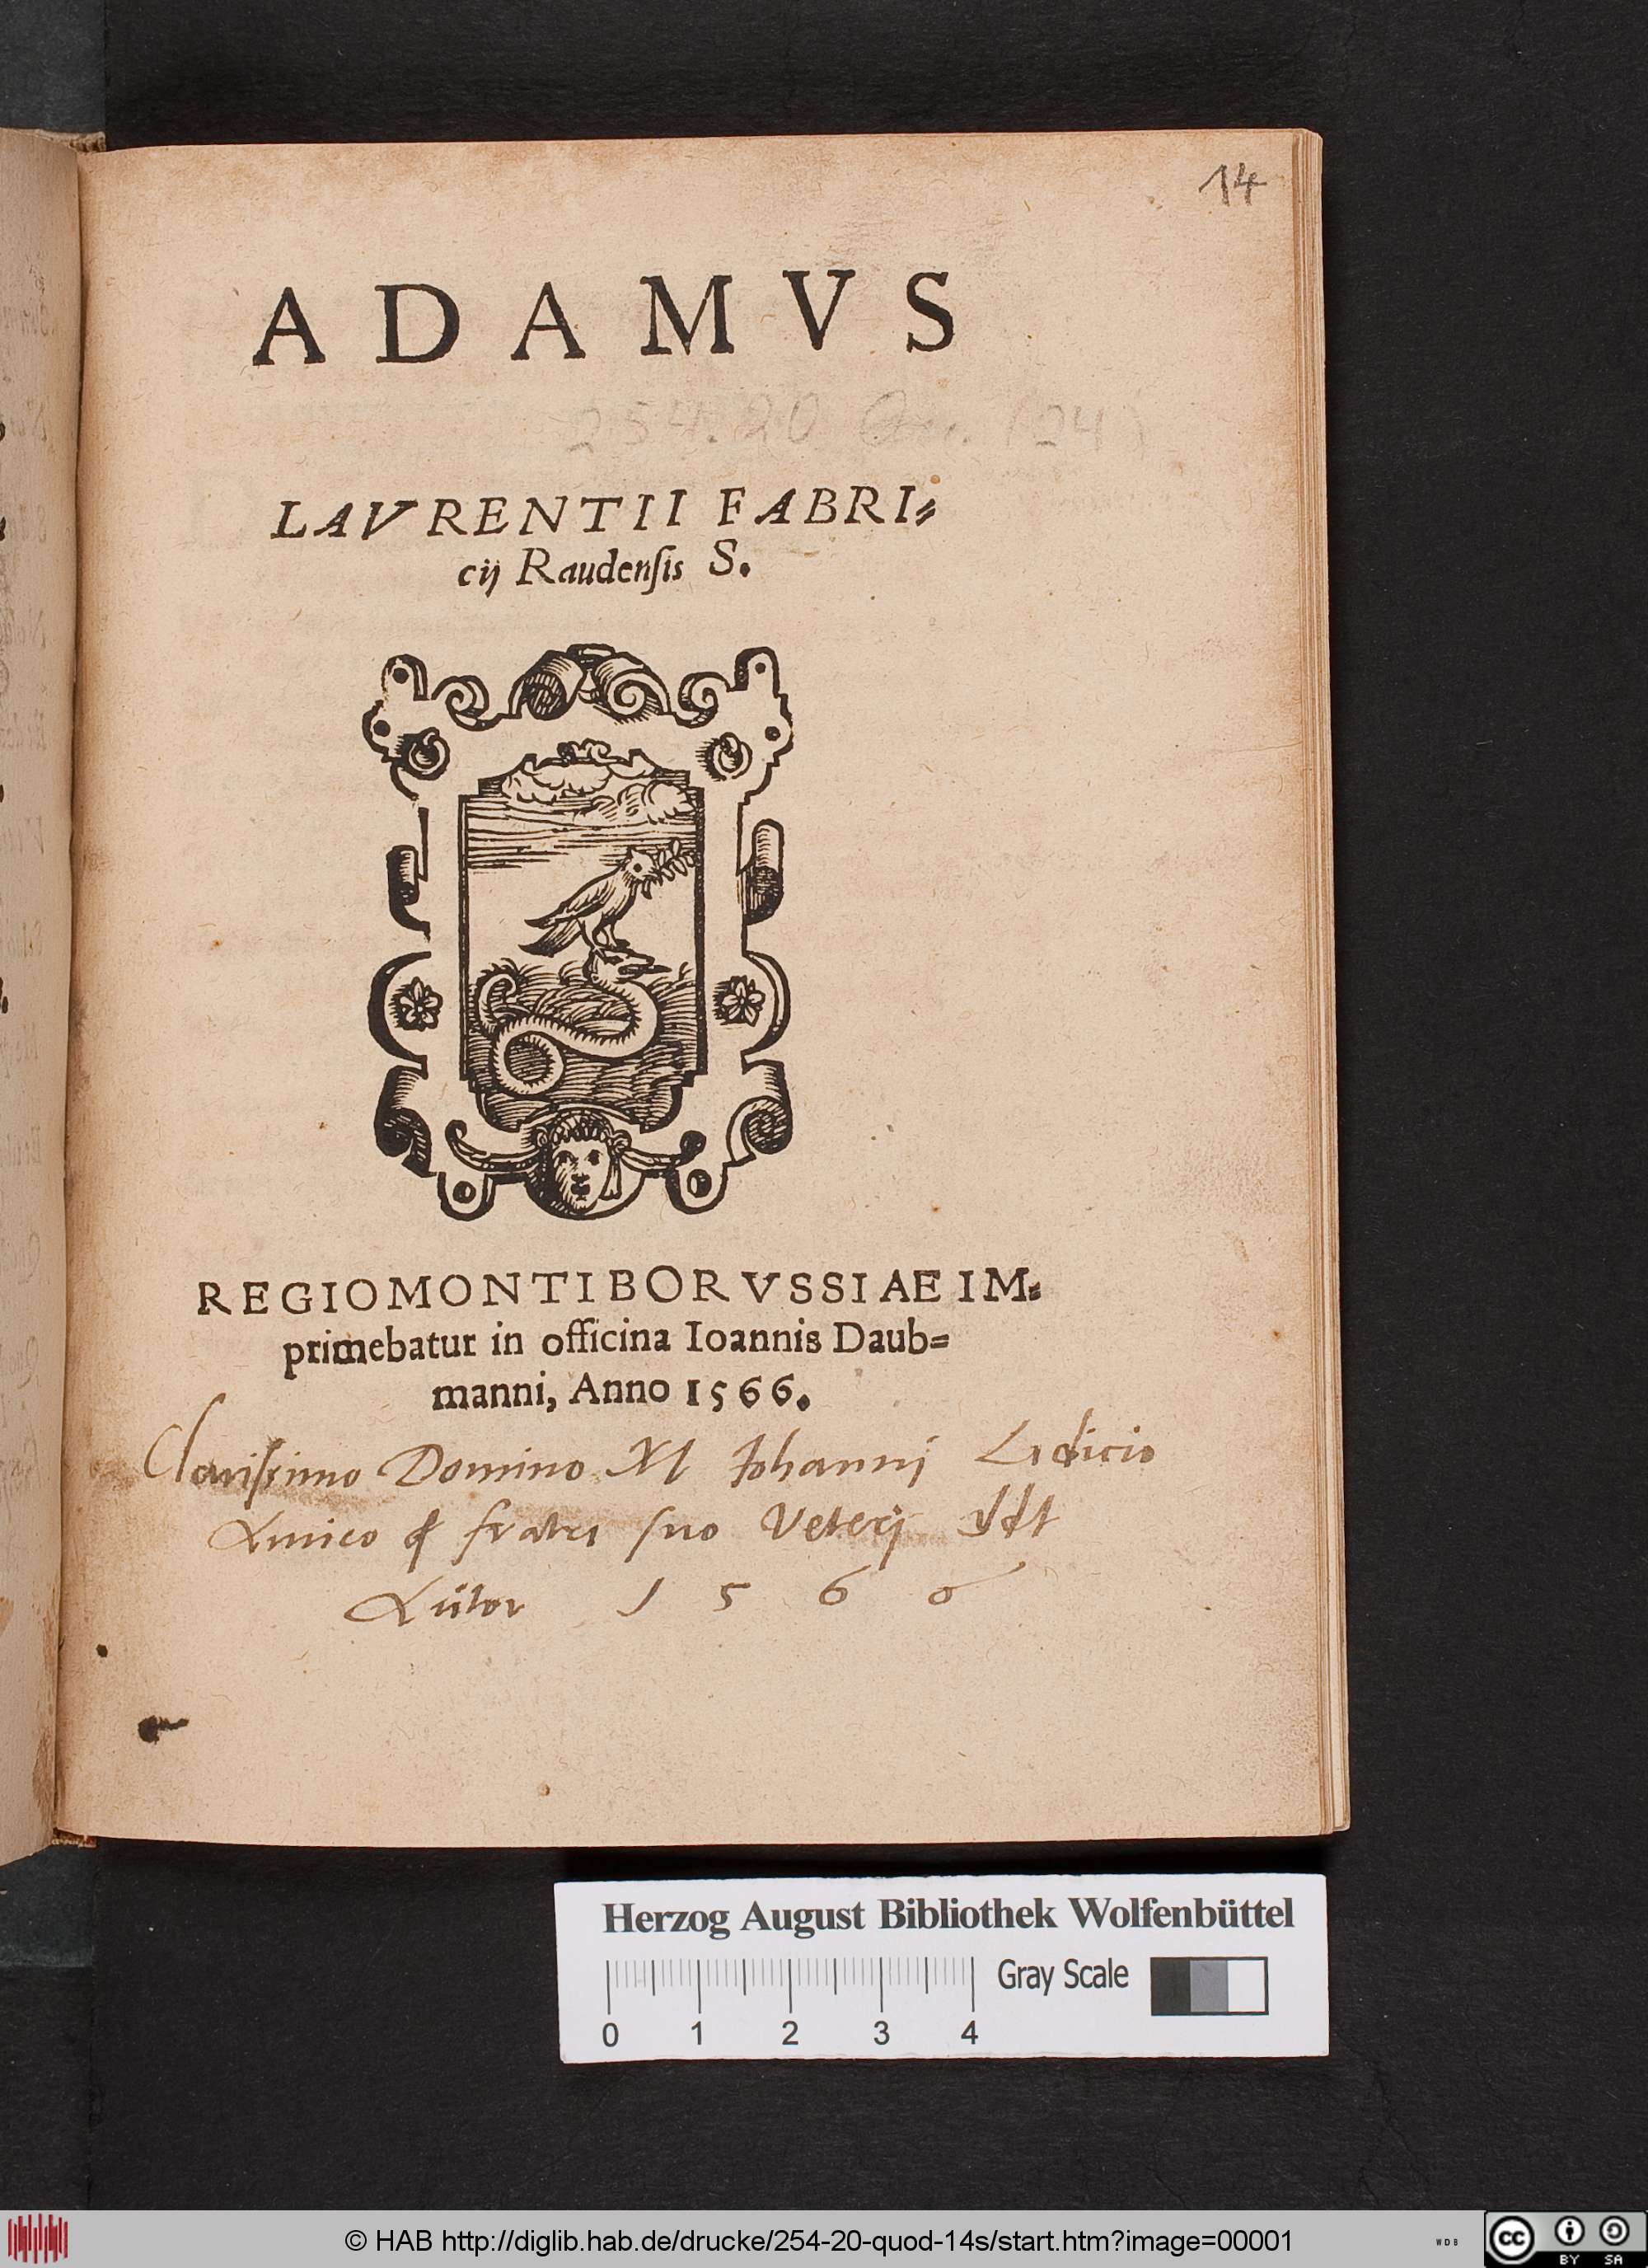 14
ADAMVS
254.20 Qu. (24)
LAVRENTII FABRI⸗
cij Raudenſis S.
REGIOMONTI BORVSSIAE IM⸗
primebatur in officina Ioannis Daub⸗
manni, Anno 1566.
Clariſsimo Domino M Johannj
Amico & fratri ſuo Veterj ddt
Autor 1566
Herzog August Bibliothek Wolfenbüttel
Gray Scale
0 1 2 3 4
© HAB http://diglib.hab.de/drucke/254-20-quod-14s/start.htm?image=00001
WDB
cc BY SA